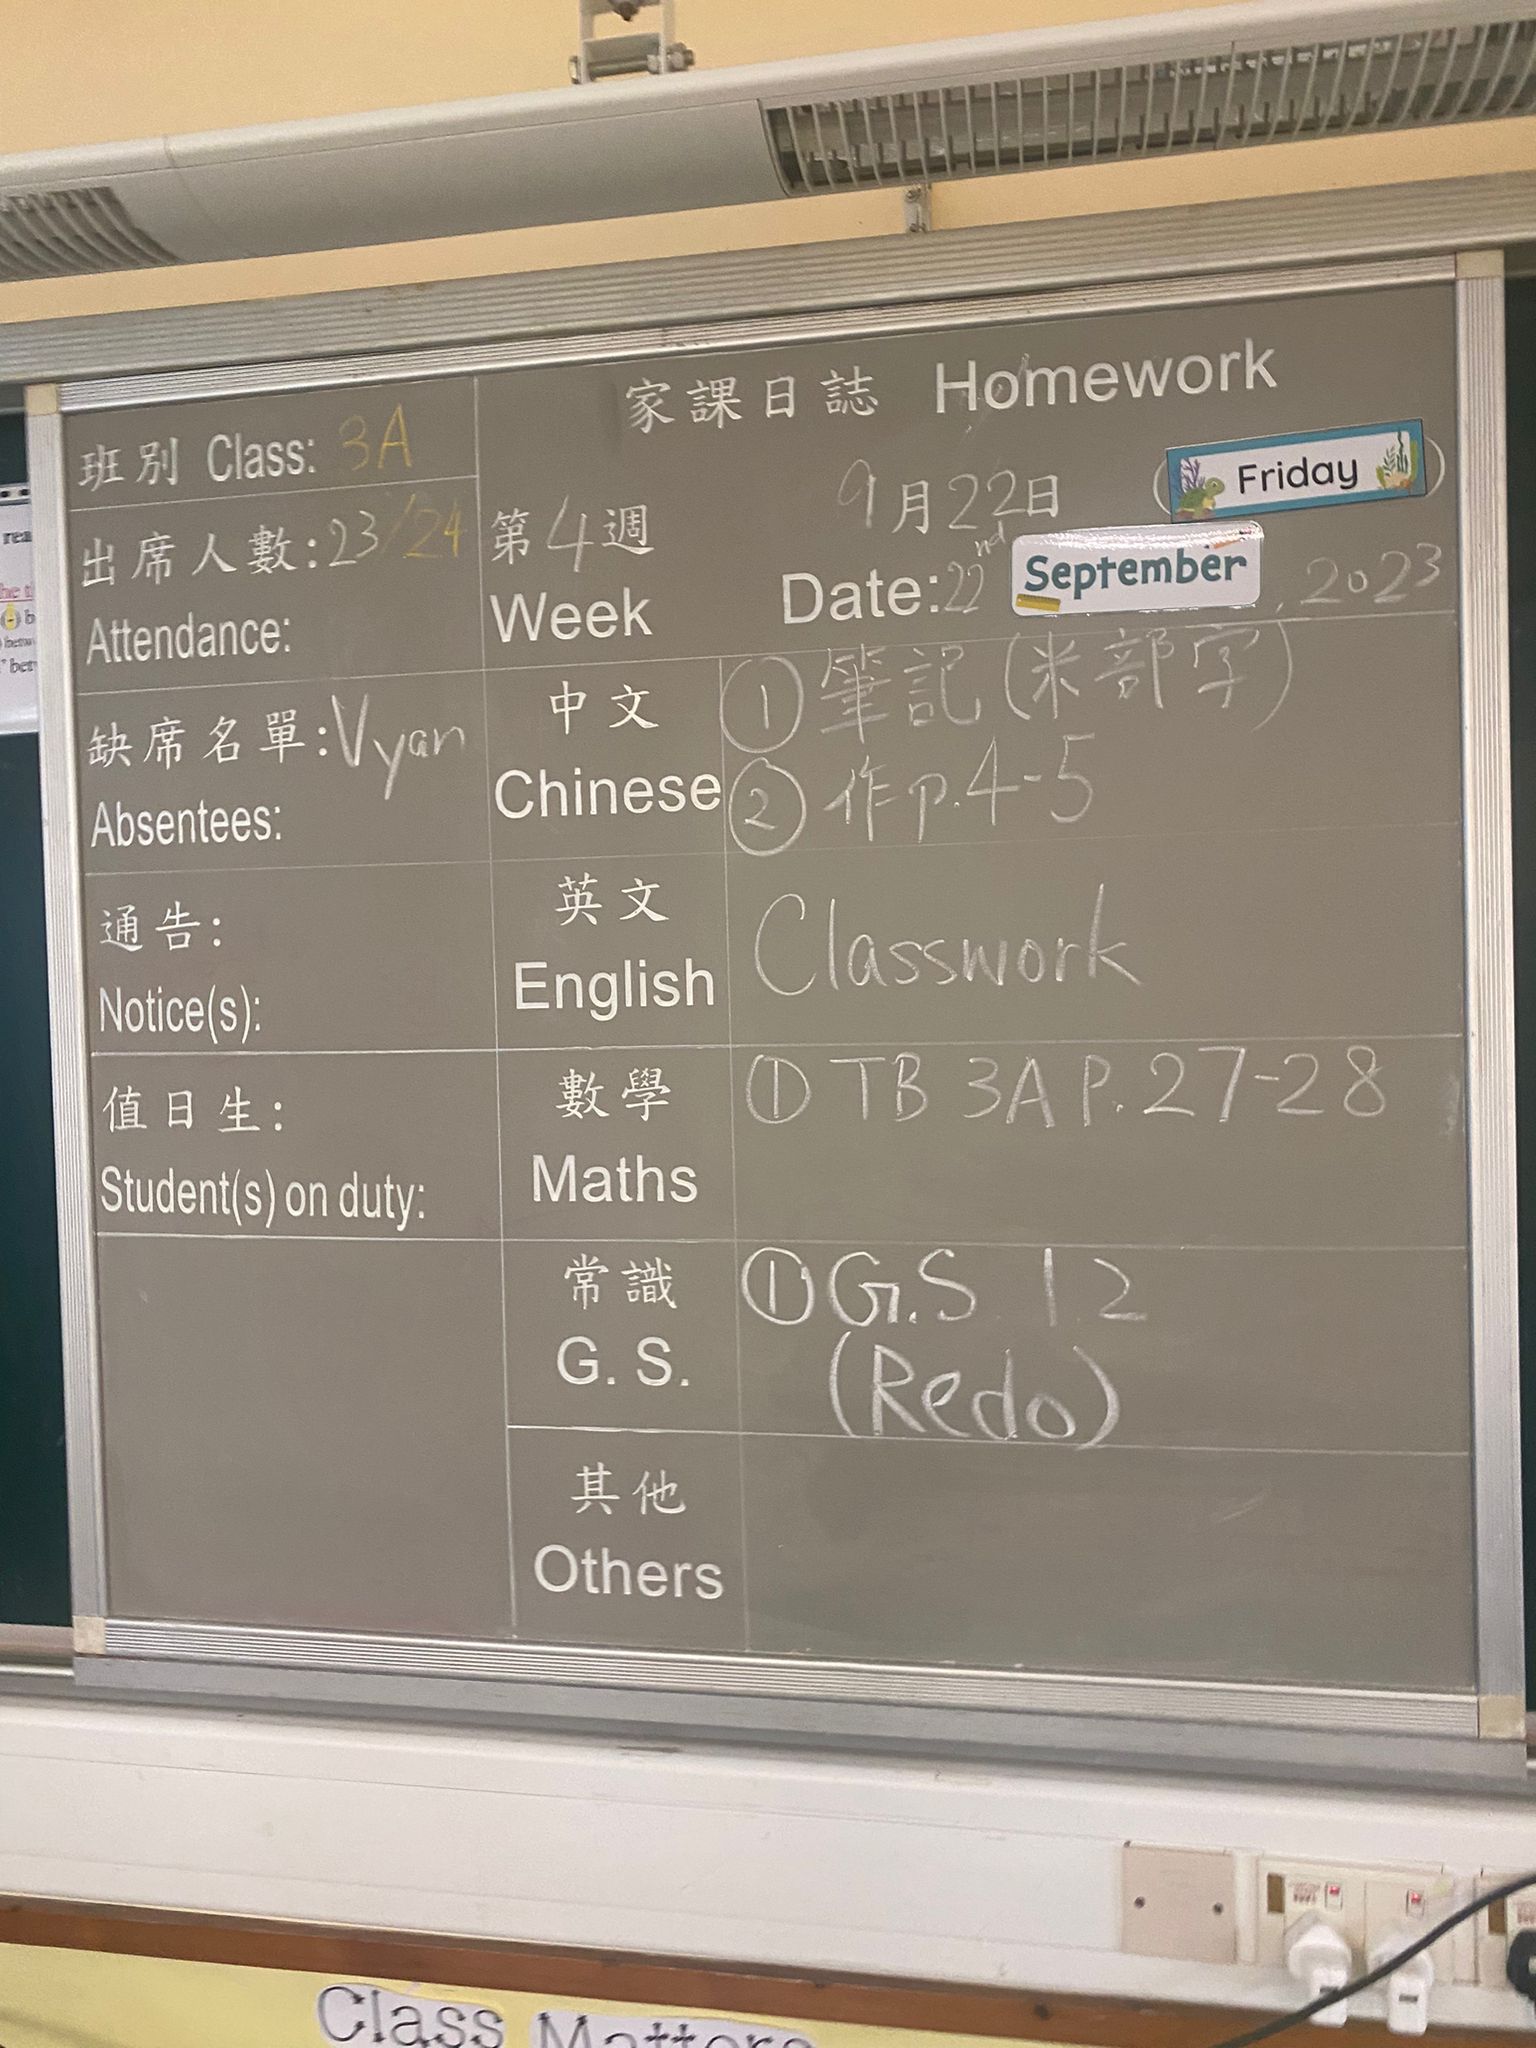 家課日誌 Homework
班別 Class: 3A
出席人數: 23/24
Attendance:
第4週
Week
9月22日 (Friday)
Date: 22nd September, 2023
缺席名單: Vyan
Absentees:
通告:
Notice(s):
值日生:
Student(s) on duty:
中文
Chinese
① 筆記 (米部字)
② 作 p.4-5
英文
English
Classwork
數學
Maths
① TB 3A P.27-28
常識
G. S.
① G.S. 1.2
(Redo)
其他
Others
Class Matters